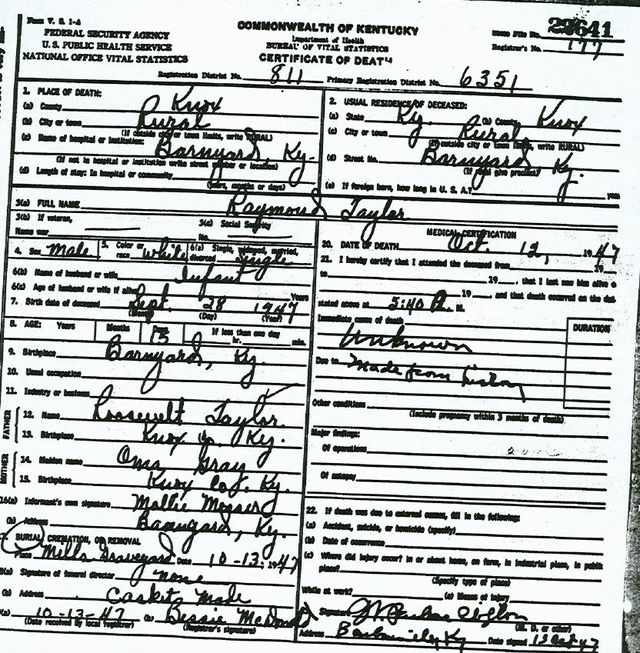 Form V. S. 1-A
FEDERAL SECURITY AGENCY
U. S. PUBLIC HEALTH SERVICE
NATIONAL OFFICE VITAL STATISTICS
COMMONWEALTH OF KENTUCKY
Department of Health
BUREAU OF VITAL STATISTICS
CERTIFICATE OF DEATH
File No. 22641
Registrar's No. 177
Registration District No. 811 Primary Registration District No. 6351
1. PLACE OF DEATH:
(a) County Knox
(b) City or town Rural
(If outside city or town limits, write RURAL)
(c) Name of hospital or institution: Barnyard Ky.
(If not in hospital or institution write street number or location)
(d) Length of stay: In hospital or community
(years, months or days)
2. USUAL RESIDENCE OF DECEASED:
(a) State Ky. (b) County Knox
(c) City or town Rural
(If outside city or town limits, write RURAL)
(d) Street No. Barnyard Ky.
(If rural give precinct)
(e) If foreign born, how long in U. S. A.?
3(a) FULL NAME Raymond Taylor
3(b) If veteran, 3(c) Social Security
Name war No.
4. Sex Male 5. Color or race white 6(a) Single, widowed, married, divorced Single
6(b) Name of husband or wife Infant
6(c) Age of husband or wife if alive Years
7. Birth date of deceased Sept. 28 1947
(Month) (Day) (Year)
8. AGE: Years Months Days 15 If less than one day hr. min.
9. Birthplace Barnyard, Ky.
10. Usual occupation
11. Industry or business
FATHER
12. Name Roosevelt Taylor
13. Birthplace Knox Co. Ky.
MOTHER
14. Maiden name Oma Gray
15. Birthplace Knox Co. Ky.
16(a) Informant's own signature Mollie
(b) Address Barnyard, Ky.
BURIAL, CREMATION, OR REMOVAL
Place Mills Graveyard Date 10-13-1947
(a) Signature of funeral director none
(b) Address Caskets Made
(a) 10-13-47 (b) Bessie McDonald
(Date received by local registrar) (Registrar's signature)
MEDICAL CERTIFICATION
20. DATE OF DEATH Oct 12, 1947
21. I hereby certify that I attended the deceased from 19
to 19, that I last saw him alive
19, and that death occurred on the date
stated above at 2:40 A. M.
Immediate cause of death DURATION
Unknown
Due to Made from history
Other conditions
(Include pregnancy within 3 months of death)
Major findings:
Of operations
Of autopsy
22. If death was due to external causes, fill in the following:
(a) Accident, suicide, or homicide (specify)
(b) Date of occurrence
(c) Where did injury occur? in or about home, on farm, in industrial place, in public
place?
(Specify type of place)
While at work? (e) Means of injury
Signature
(M. D. or other)
Address Barbourville Ky Date signed 13 Oct 47